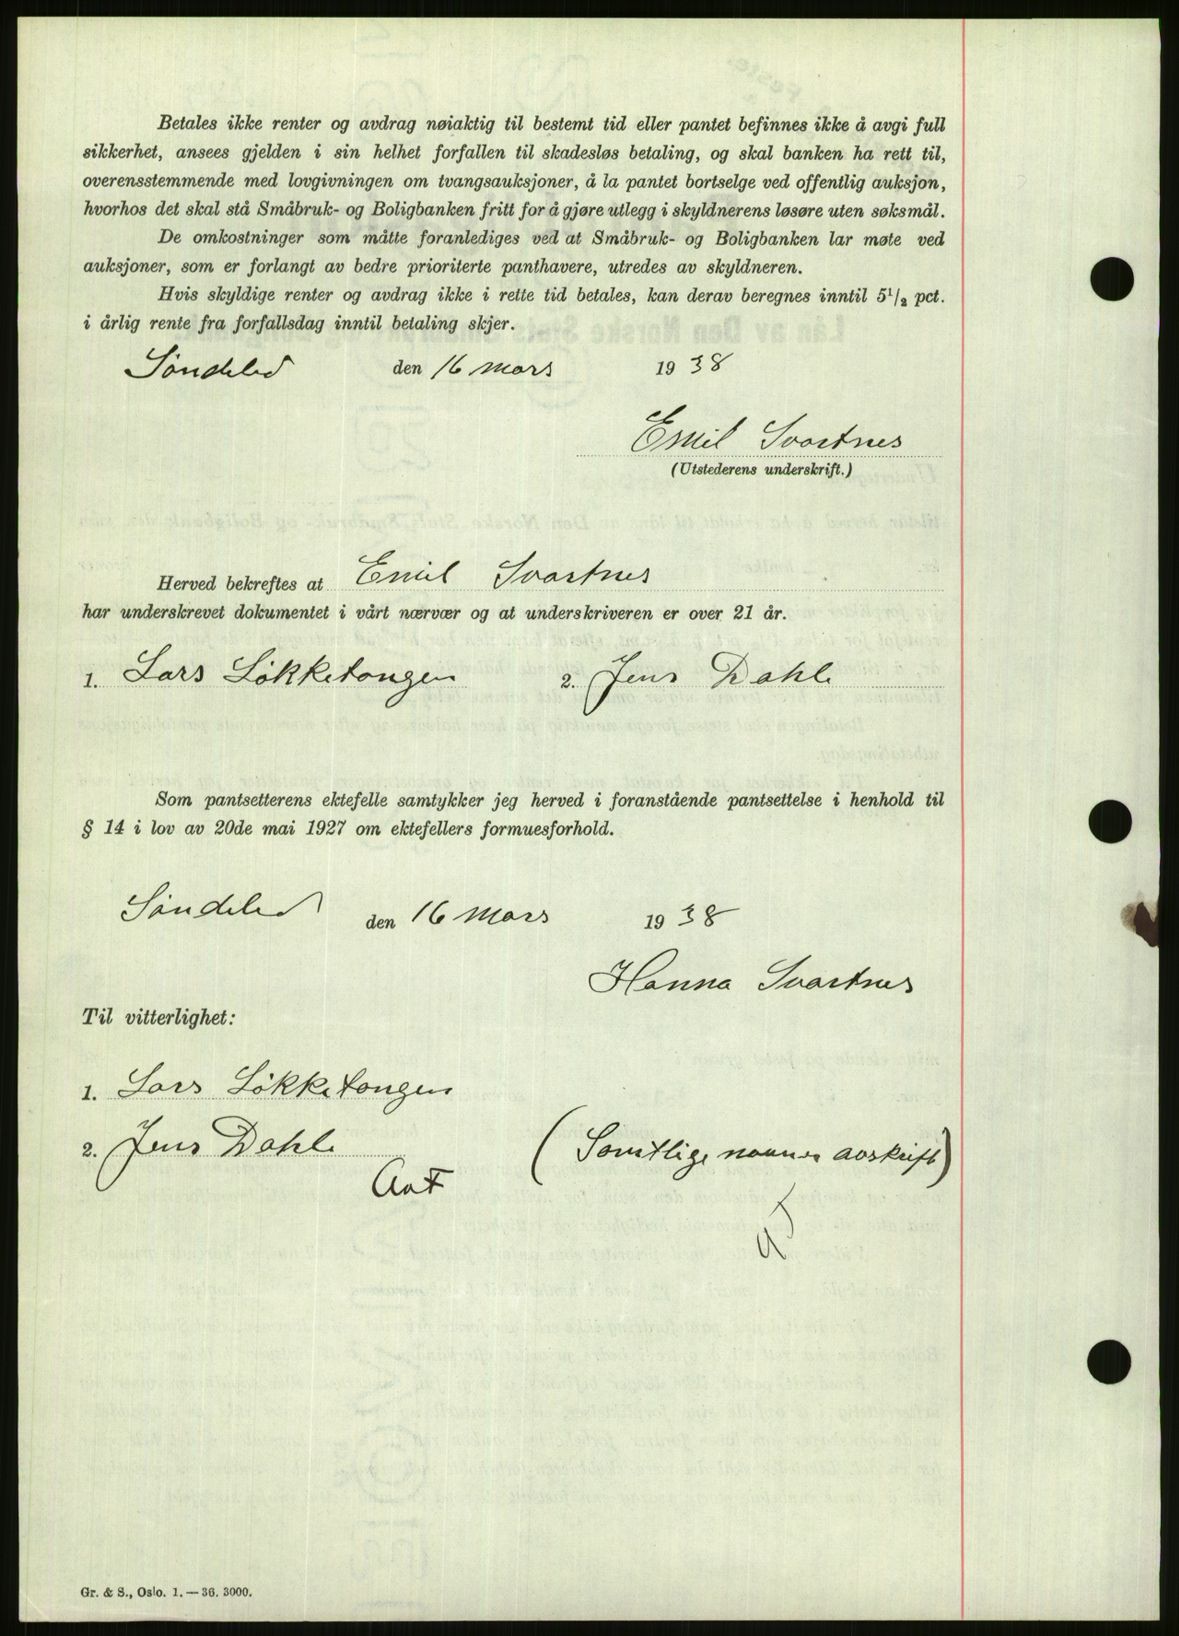 Betales ikke renter og avdrag nøiaktig til bestemt tid eller pantet befinnes ikke å avgi full
sikkerhet, ansees gjelden i sin helhet forfallen til skadesløs betaling, og skal banken ha rett til,
overensstemmende med lovgivningen om tvangsauksjoner, å la pantet bortselge ved offentlig auksjon,
hvorhos det skal stå Småbruk- og Boligbanken fritt for å gjøre utlegg i skyldnerens løsøre uten søksmål.
De omkostninger som måtte foranlediges ved at Småbruk- og Boligbanken lar møte ved
auksjoner, som er forlangt av bedre prioriterte panthavere, utredes av skyldneren.
Hvis skyldige renter og avdrag ikke i rette tid betales, kan derav beregnes inntil 5 1/2 pct.
i årlig rente fra forfallsdag inntil betaling skjer.
Søndeled den 16 mars 1938
Emil Svartnes
(Utstederens underskrift.)
Herved bekreftes at Emil Svartnes
har underskrevet dokumentet i vårt nærvær og at underskriveren er over 21 år.
1. Lars Løkketangen 2. Jens Dahle
Som pantsetterens ektefelle samtykker jeg herved i foranstående pantsettelse i henhold til
§ 14 i lov av 20de mai 1927 om ektefellers formuesforhold.
Søndeled den 16 mars 1938
Hanna Svartnes
Til vitterlighet:
1. Lars Løkketangen
2. Jens Dahle
(Samtlige navner avskrift)
Gr. & S., Oslo. 1. — 36. 3000.